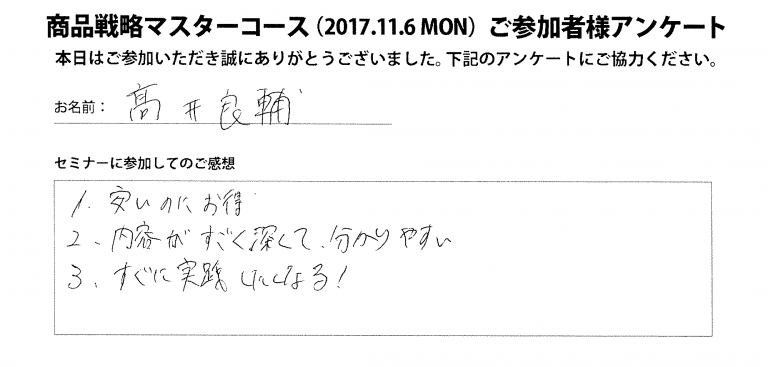 商品戦略マスターコース(2017.11.6 MON) ご参加者様アンケート
本日はご参加いただき誠にありがとうございました。下記のアンケートにご協力ください。
お名前: 髙井良輔
セミナーに参加してのご感想
1. 安いのにお得
2、内容がすごく深くて、分かりやすい
3、すぐに実践したくなる!